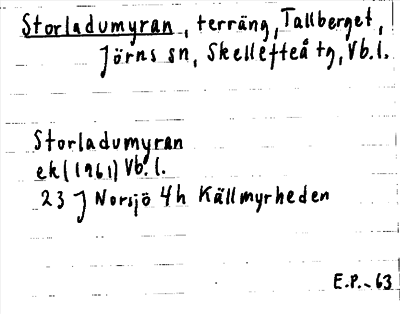 Storladumyran, terräng, Tallberget,
Jörns sn, Skellefteå tg, Vb.l.
Storladumyran
ek (1961) Vb.l.
23 J Norsjö 4h Källmyrheden
E.P.-63